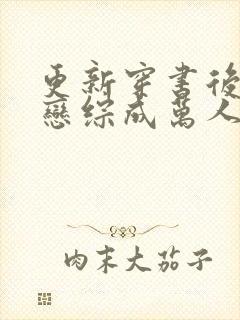 更新穿書後
戀綜成萬人
肉末大茄子